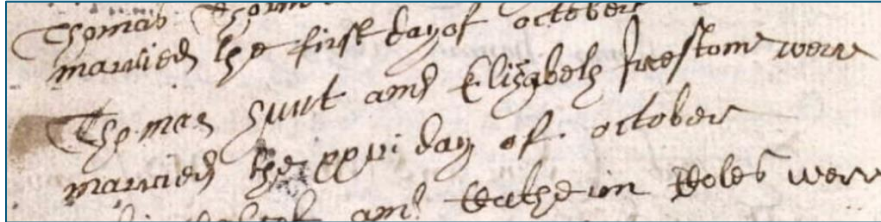 Thomas
married the first day of october
Thomas hunt and Elizabeth frestone were
married the xxvi day of october
and Katherin were